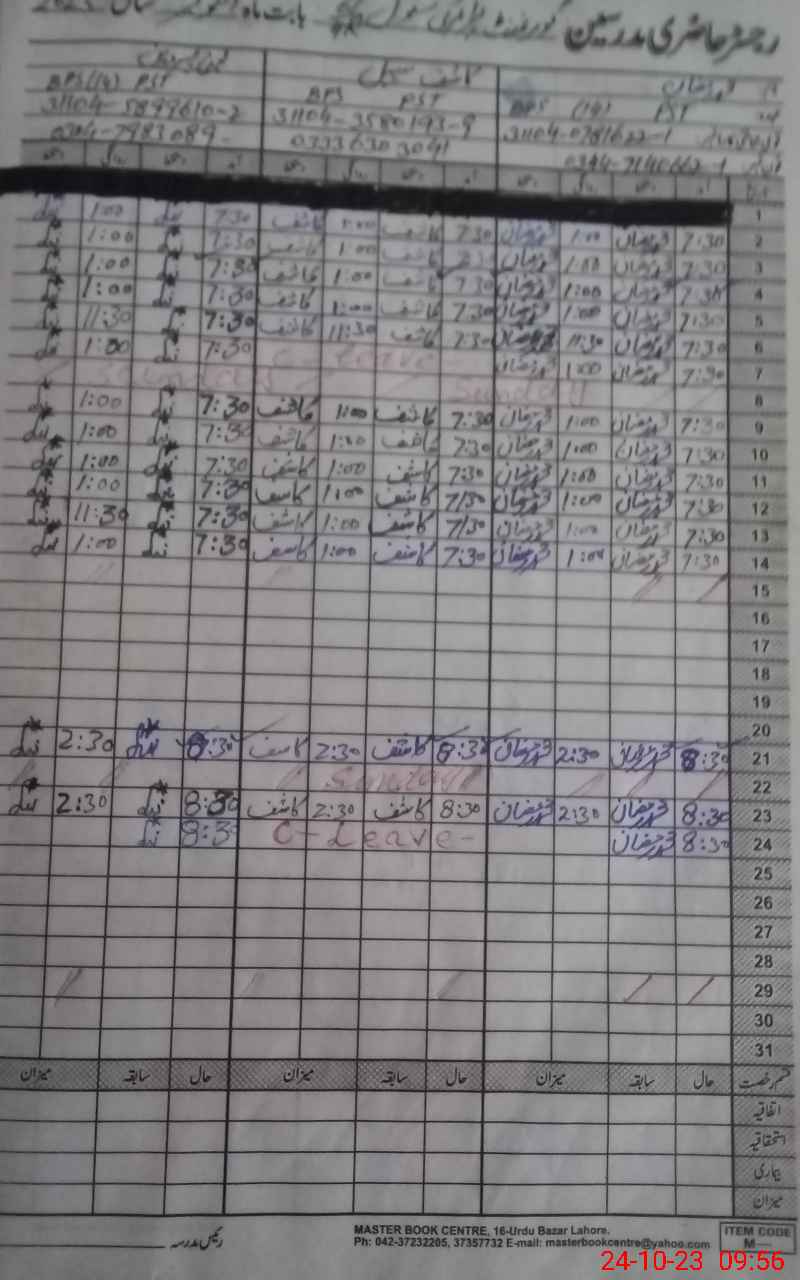 رجسٹر حاضری مدرسین گورنمنٹ پرائمری سکول بابت ماہ
محمد رمضان کاشف سہیل
BPS (14) PST BPS PST BPS (14) PST
31104-0781622-1 31104-3580193-9 31104-5899610-2
0344-7140662-1 03336303041 0304-7983089-
1
2 7:30 محمد رمضان 1:00 محمد رمضان 7:30 کاشف 1:00 کاشف 7:30 1:00
3 7:30 محمد رمضان 1:00 محمد رمضان 7:30 کاشف 1:00 کاشف 7:30 1:00
4 7:30 محمد رمضان 1:00 محمد رمضان 7:30 کاشف 1:00 کاشف 7:30 1:00
5 7:30 محمد رمضان 1:00 محمد رمضان 7:30 کاشف 1:00 کاشف 7:30 1:00
6 7:30 محمد رمضان 11:30 محمد رمضان 7:30 کاشف 11:30 کاشف 7:30 11:30
7 7:30 محمد رمضان 1:00 محمد رمضان C- Leave- 7:30 1:00
8 Sunday
9 7:30 محمد رمضان 1:00 محمد رمضان 7:30 کاشف 1:00 کاشف 7:30 1:00
10 7:30 محمد رمضان 1:00 محمد رمضان 7:30 کاشف 1:00 کاشف 7:30 1:00
11 7:30 محمد رمضان 1:00 محمد رمضان 7:30 کاشف 1:00 کاشف 7:30 1:00
12 7:30 محمد رمضان 1:00 محمد رمضان 7:30 کاشف 1:00 کاشف 7:30 1:00
13 7:30 محمد رمضان 1:00 محمد رمضان 7:30 کاشف 1:00 کاشف 7:30 11:30
14 7:30 محمد رمضان 1:00 محمد رمضان 7:30 کاشف 1:00 کاشف 7:30 1:00
15
16
17
18
19
20
21 8:30 محمد رمضان 2:30 محمد رمضان 8:30 کاشف 2:30 کاشف 8:30 2:30
22 Sunday
23 8:30 محمد رمضان 2:30 محمد رمضان 8:30 کاشف 2:30 کاشف 8:30 2:30
24 8:30 محمد رمضان C- Leave- 8:30
25
26
27
28
29
30
31
قسم رخصت حال سابقہ میزان حال سابقہ میزان حال سابقہ میزان
اتفاقیہ
استحقاقیہ
بیماری
میزان
رئیس مدرسہ
MASTER BOOK CENTRE, 16-Urdu Bazar Lahore.
Ph: 042-37232205, 37357732 E-mail: masterbookcentre@yahoo.com
ITEM CODE
M—
24-10-23 09:56